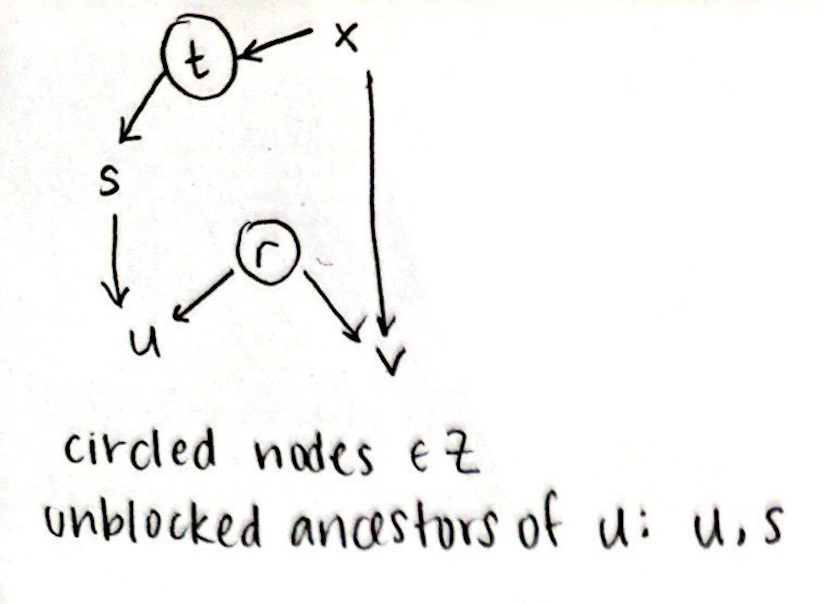 t x
s
r
u
v
circled nodes ∈ Z
unblocked ancestors of u: u, s